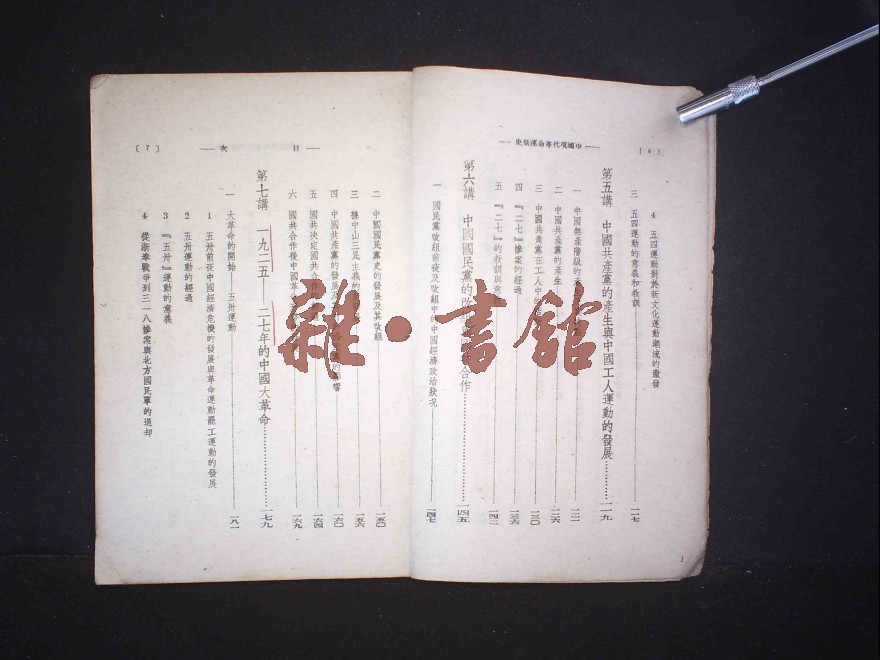 〔6〕
——中國現代革命運動史——
4 五四運動對於新文化運動潮流的激發
三 五四運動的意義和教訓……一一七
第五講 中國共產黨的產生與中國工人運動的發展……一一九
一 中國無產階級的……一二一
二 中國共產黨的產生……一二六
三 中國共產黨在工人中的……一三〇
四 『二七』慘案的經過……一三六
五 『二七』的教訓與意……一四二
第六講 中國國民黨的改……合作……一四五
一 國民黨改組前夜及改組中的中國經濟政治狀況……一四七
——目次——
〔7〕
二 中國國民黨史的發展及其改組……一五〇
三 孫中山三民主義的……一五六
四 中國共產黨的發展及……的影響……一六〇
五 國共決定國共合作……一六四
六 國共合作後中國革……一六九
第七講 一九二五——二七年的中國大革命……一七九
一 大革命的開始——五卅運動……一八一
1 五卅前夜中國經濟危機的發展與革命運動罷工運動的發展
2 五卅運動的經過
3 『五卅』運動的意義
4 從浙奉戰爭到三一八慘案與北方國民軍的退却
雜·書館